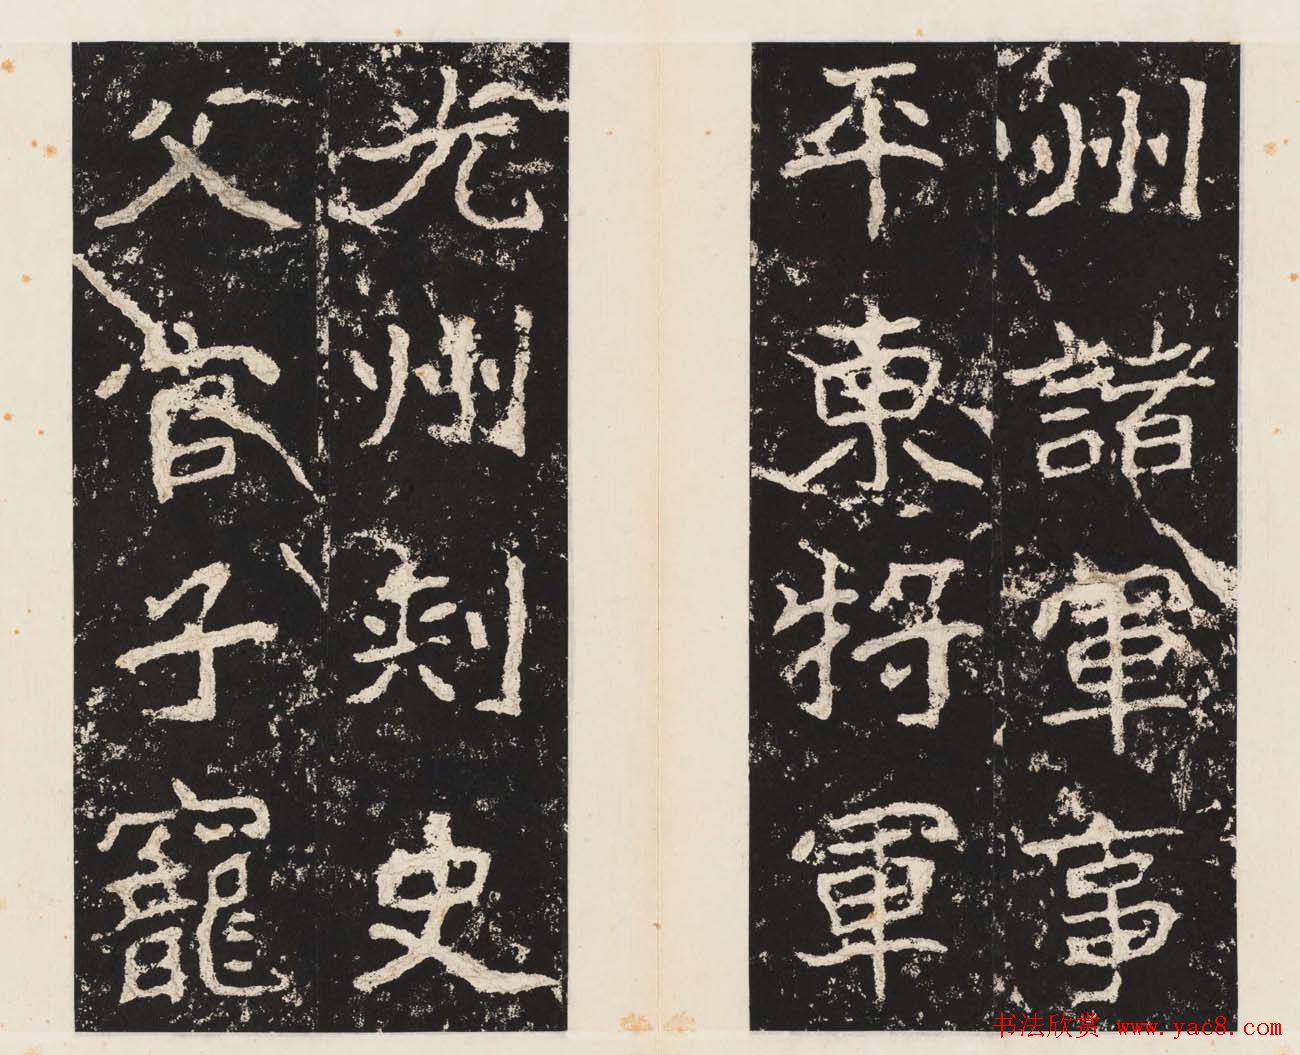 州諸軍事
平東將軍
光州刺史
父官子寵
书法欣赏 www.yac8.com